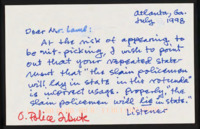 Atlanta, Ga.
July 1998
Dear Mr. Laurel:
At the risk of appearing to
be nit-picking, I wish to point
out that your repeated state
ment that "the slain policeman
will lay in state in the rotunda"
is incorrect usage. Properly, "the
slain policemen will lie in state."
Listener
Police